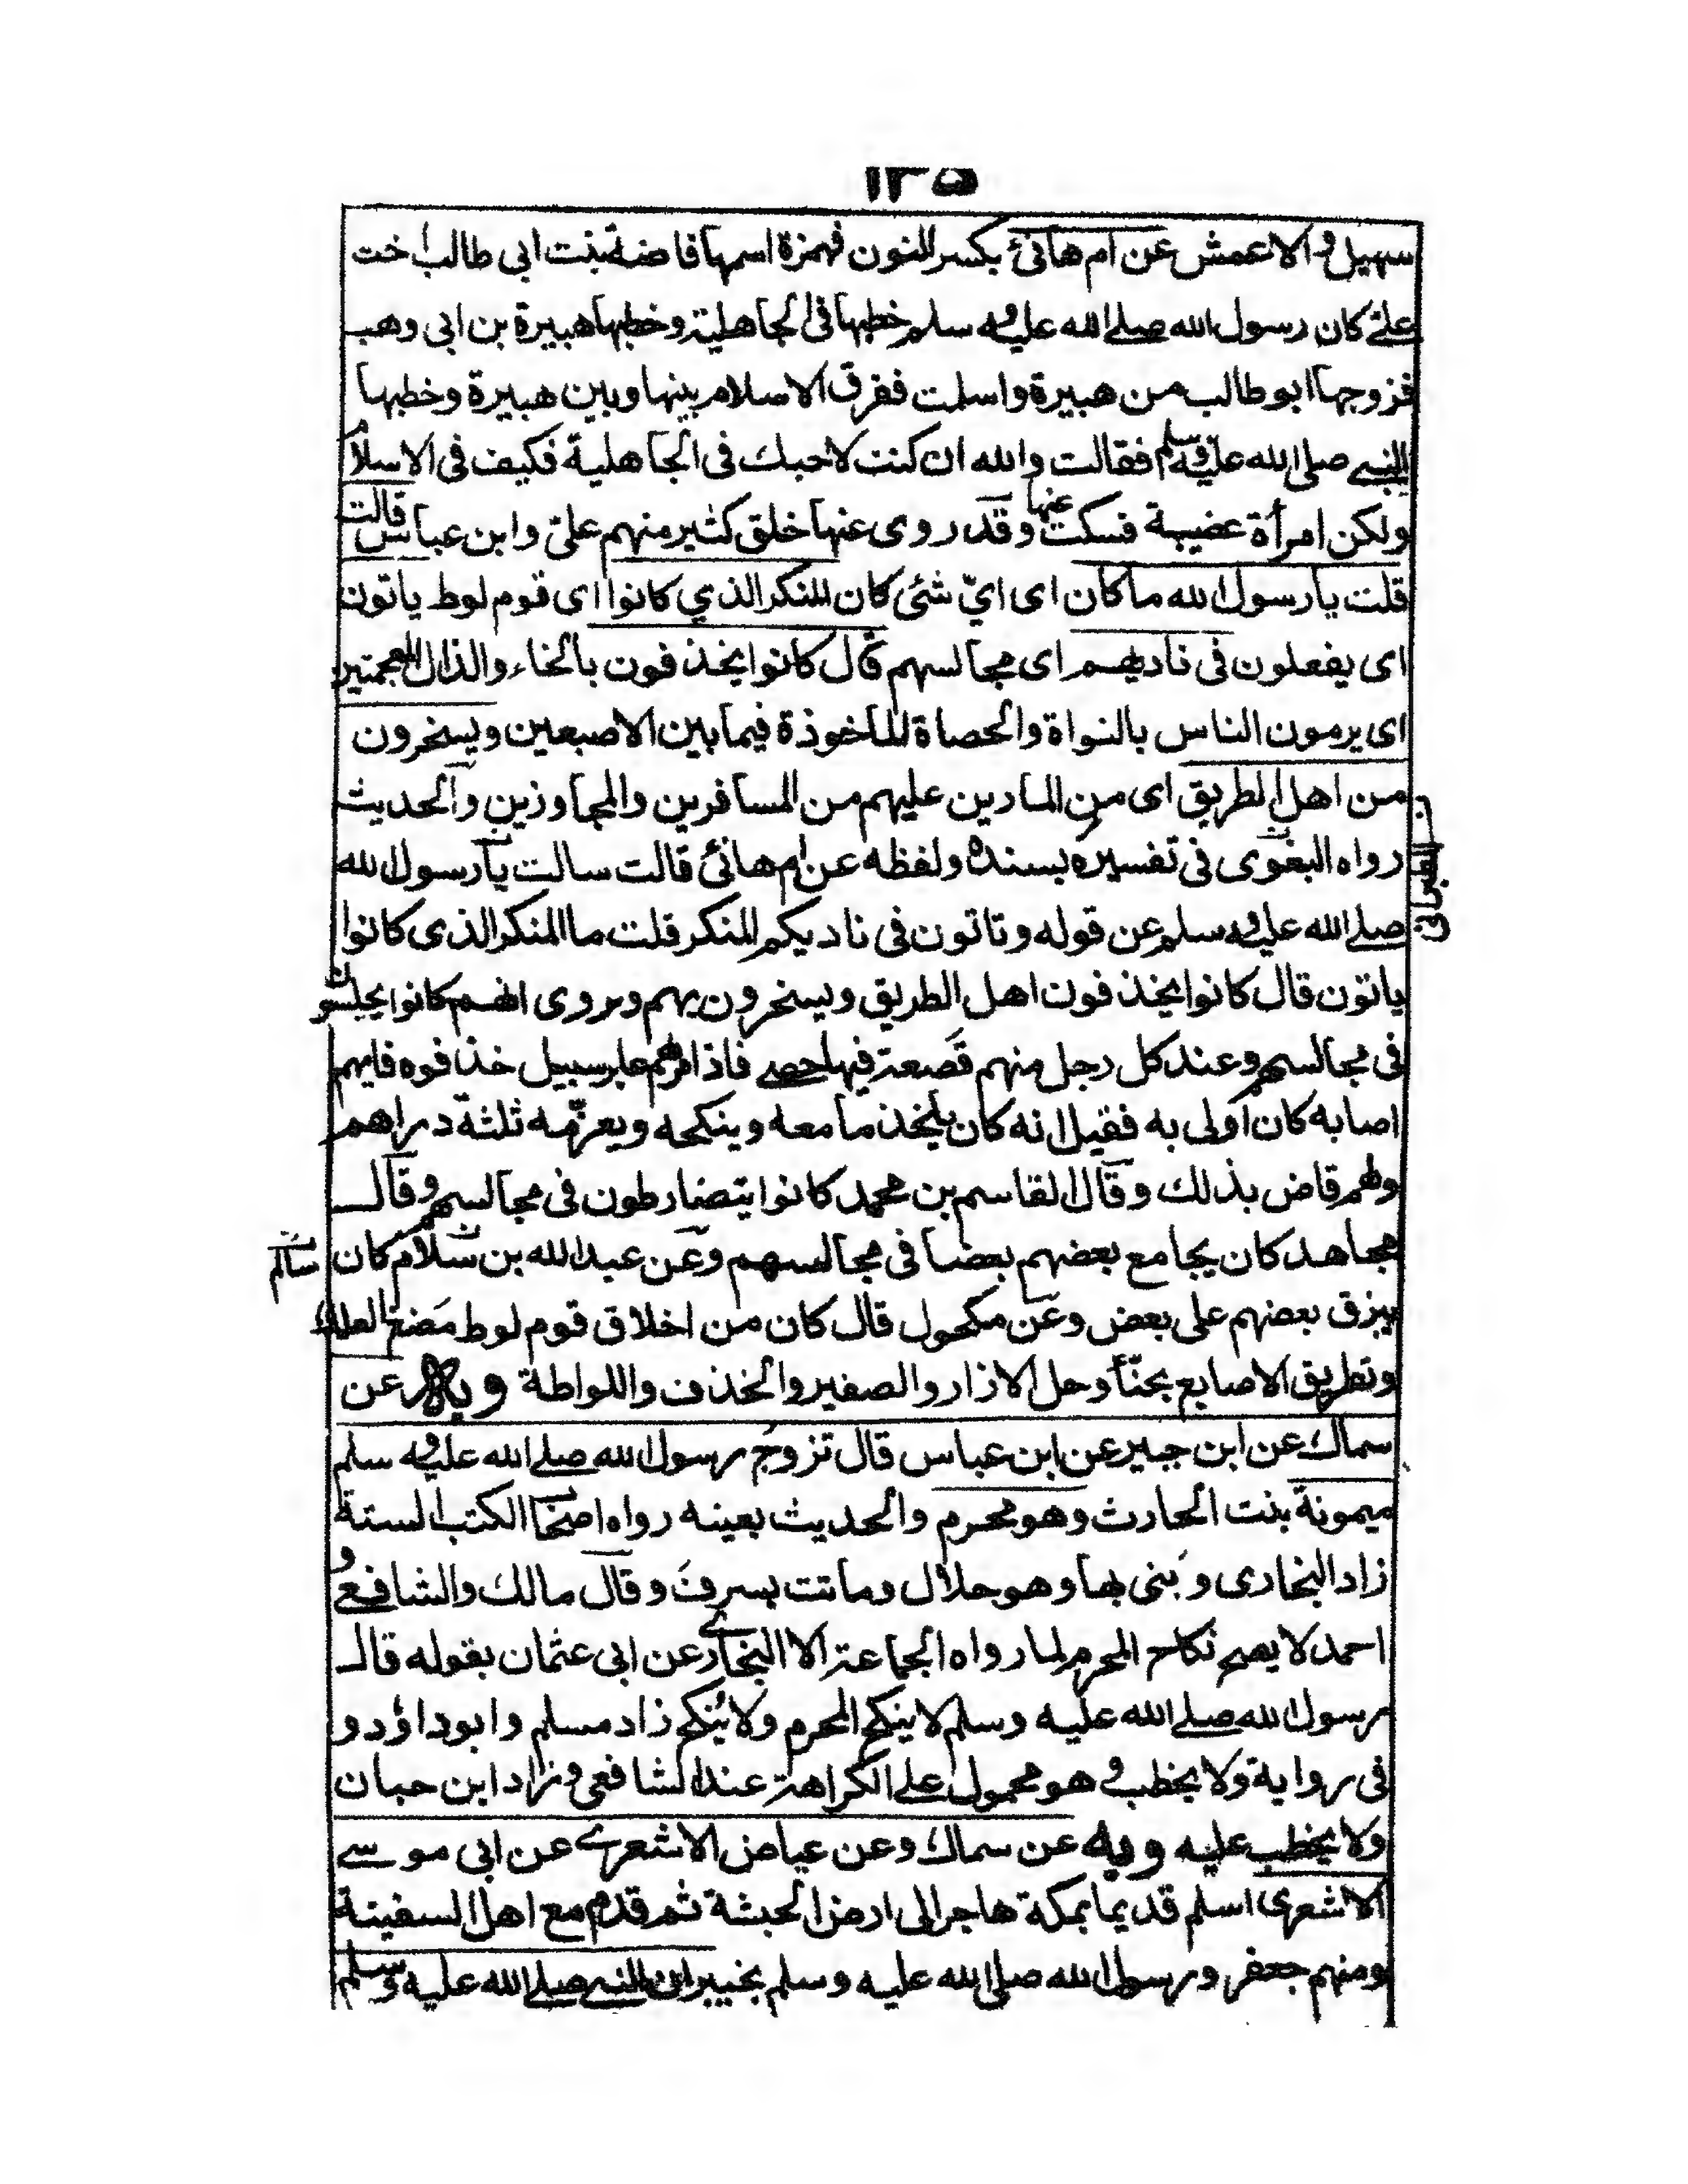 ١٣٥
سهيل والاعمش عن ام هانئ بكسر النون فهمزة اسمها فاضنة بنت ابى طالب اخت
علىّ كان رسول الله صلے الله عليه و سلم خطبها فى الجاهلية وخطبها هبيرة بن ابى وهب
فزوجها ابو طالب من هبيرة واسلمت ففرق الاسلام بينها وبين هبيرة وخطبها
النبى صلى الله عليه وسلم فقالت والله ان كنت لاحبك فى الجاهلية فكيف فى الاسلام
ولكن امرأة عضيبة فسكت عنها وقد روى عنها خلق كثير منهم علىّ وابن عباس قالت
قلت يا رسول الله ما كان اى اىّ شئى كان المنكر الذي كانوا اى قوم لوط ياتون
اى يفعلون فى ناديهم اى مجالسهم قال كانوا يخذفون بالخاء والذال المعجمتين
اى يرمون الناس بالنواة والحصاة الماخوذة فيما بين الاصبعين ويسخرون
من اهل الطريق اى من المارين عليهم من المسافرين والمجاوزين والحديث
رواه البغوى فى تفسيره بسنده ولفظه عن ام هانئ قالت سالت يا رسول الله
صلے الله عليه و سلم عن قوله وتاتون فى ناديكم المنكر قلت ما المنكر الذى كانوا
ياتون قال كانوا يخذفون اهل الطريق ويسخرون بهم ويروى انهم كانوا يجلسون
فى مجالسهم وعند كل رجل منهم قَصعة فيها حصے فاذا مر بهم عابر سبيل خذفوه فايهم
اصابه كان اولى به فقيل انه كان ياخذ ما معه وينكحه ويعزّمه ثلثة دراهم
ولهم قاض بذلك وقال القاسم بن محمد كانوا يتضارطون فى مجالسهم وقال
مجاهد كان يجامع بعضهم بعضا فى مجالسهم وعن عبد الله بن سلام كان
سالم
يبزق بعضهم على بعض وعن مكحول قال كان من اخلاق قوم لوط مَضغ العلك
وتطريق الاصابع بحنّأ وحل الازار والصفير والخذف واللواطة وبه عن
سماك عن ابن جبير عن ابن عباس قال تزوج رسول الله صلے الله عليه و سلم
ميمونة بنت الحارث وهو محرم والحديث بعينه رواه اصحا الكتب الستة
زاد البخارى وبَنى بها وهو حلال وماتت بسرف وقال مالك والشافعى و
احمد لا يصح نكاح المحرم لما رواه الجماعة الا البخارى عن ابى عثمان بقوله قال
رسول الله صلے الله عليه وسلم لا ينكح المحرم ولا يُنكح زاد مسلم وابو داؤد و
فى رواية ولا يخطب و هو محمول على الكراهة عند الشافعى وزاد ابن حبان
ولا يخطب عليه وبه عن سماك وعن عياض الاشعرى عن ابى موسے
الاشعرى اسلم قديما بمكة هاجر الى ارض الحبشة ثم قدم مع اهل السفينة
ومنهم جعفر ورسول الله صلى الله عليه وسلم بخيبر ان النبى صلے الله عليه وسلم